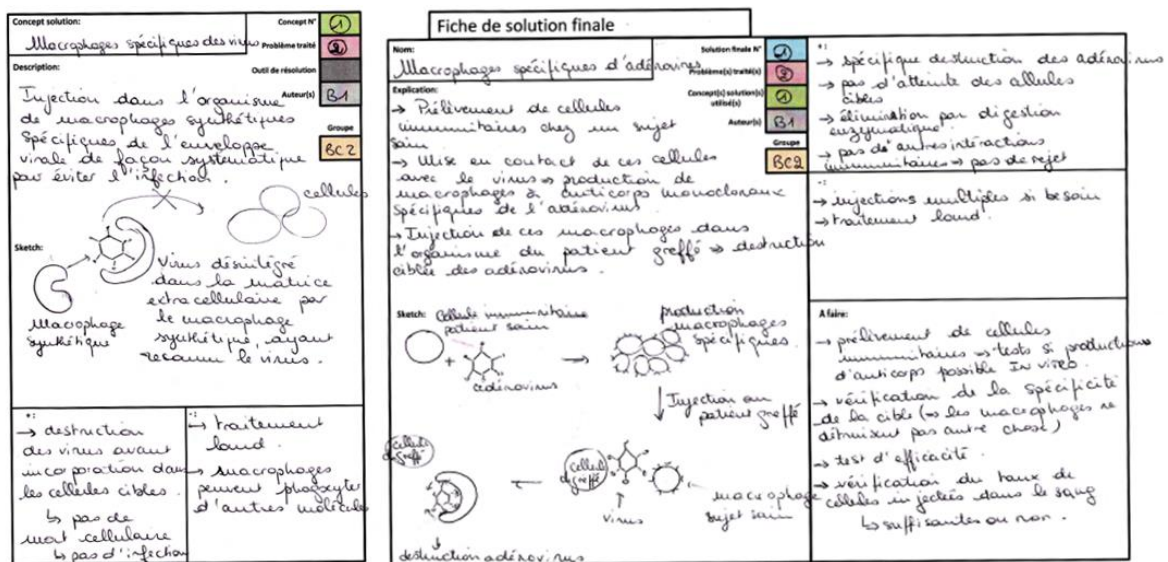 Concept solution:
Concept N°
1
Macrophages spécifiques des virus
Problème traité
2
Description:
Outil de résolution
Auteur(s)
B1
Groupe
BC2
Injection dans l'organisme
de macrophages synthétiques
spécifiques de l'enveloppe
virale de façon systématique
pour éviter l'infection.
cellules
Sketch:
Macrophage
synthétique
virus désintégré
dans la matrice
extracellulaire par
le macrophage
synthétique, ayant
reconnu le virus.
+:
→ destruction
des virus avant
incorporation dans
les cellules cibles.
↳ pas de
mort cellulaire
↳ pas d'infection
-:
→ traitement
lourd.
→ macrophages
peuvent phagocyter
d'autres molécules
Fiche de solution finale
Nom:
Macrophages spécifiques d'adénovirus
Solution finale N°
1
Problème(s) traité(s)
2
Concept(s) solution(s)
utilisé(s)
1
Auteur(s)
B1
Groupe
BC2
Explication:
→ Prélèvement de cellules
immunitaires chez un sujet
sain
→ Mise en contact de ces cellules
avec le virus → production de
macrophages à anticorps monoclonaux
spécifiques de l'adénovirus.
→ Injection de ces macrophages dans
l'organisme du patient greffé → destruction
ciblée des adénovirus.
Sketch:
cellule immunitaire
patient sain
+
adénovirus
production
macrophages
spécifiques.
Injection au
patient greffé
cellule
du greffé
cellule
du greffé
virus
macrophage
sujet sain
destruction adénovirus
+:
→ spécifique destruction des adénovirus
→ pas d'atteinte des cellules
cibles
→ élimination par digestion
enzymatique.
→ pas d'autres interactions
immunitaires → pas de rejet
-:
→ injections multiples si besoin
→ traitement lourd
A faire:
→ prélèvement de cellules
immunitaires → tests si productions
d'anticorps possible In vitro.
→ vérification de la spécificité
de la cible (→ les macrophages ne
détruisent pas autre chose)
→ test d'efficacité.
→ vérification du taux de
cellules injectées dans le sang
↳ suffisantes ou non.